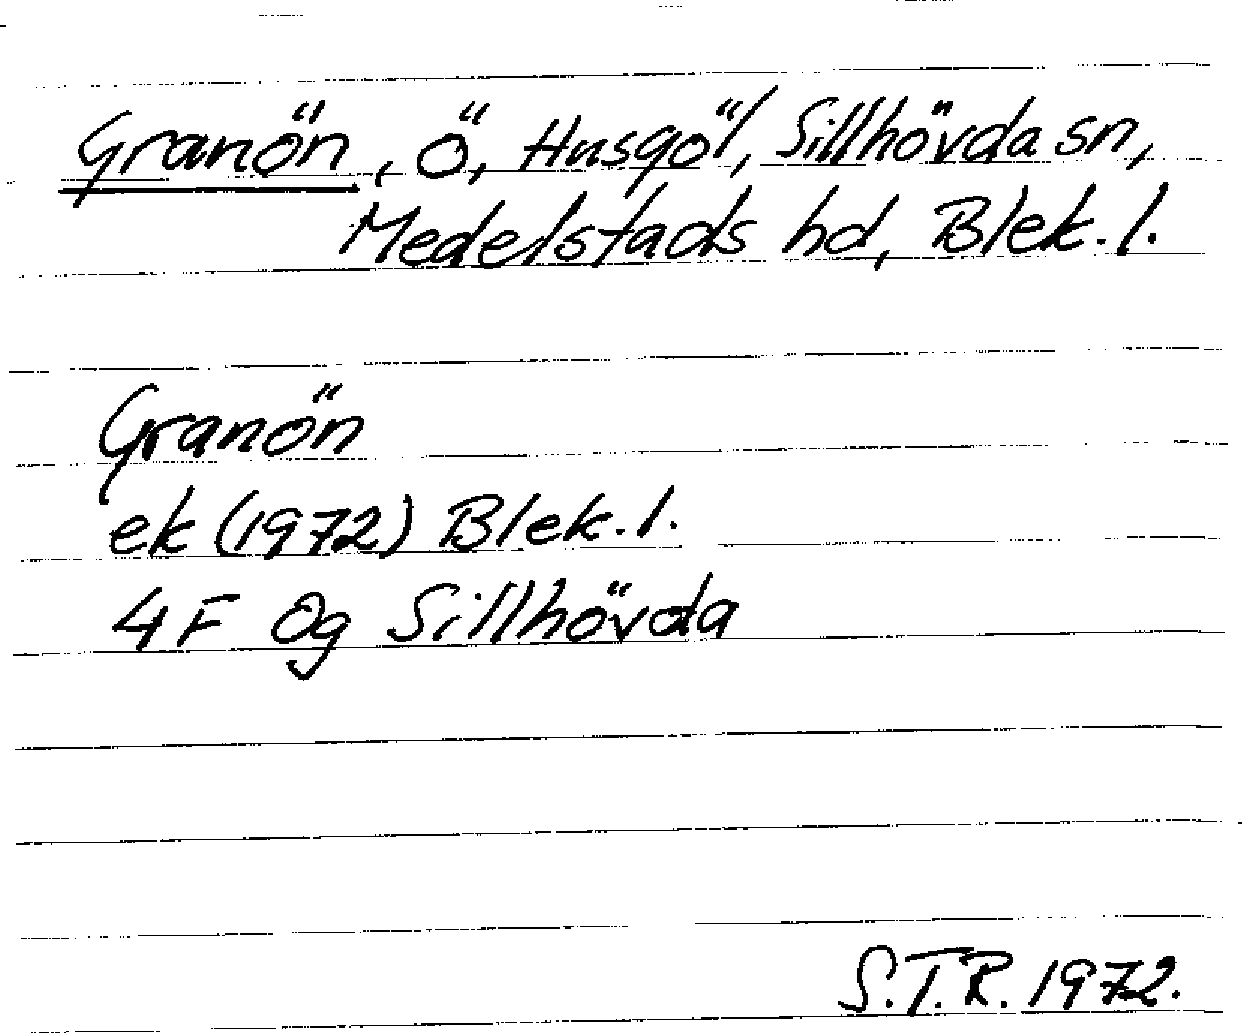 Granön, Ö, Husgöl, Sillhövda sn,
Medelstads hd, Blek. l.
Granön
ek (1972) Blek. l.
4F 0g Sillhövda
S.T.R. 1972.